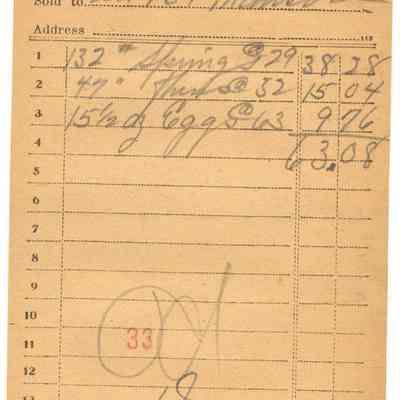 Sold to
Address
1 132 # Spring @ 29 38 28
2 47 # Hens @ 32 15 04
3 15½ dz Eggs @ 63 9 76
4 63.08
5
6
7
8
9
10
11 33
12
13